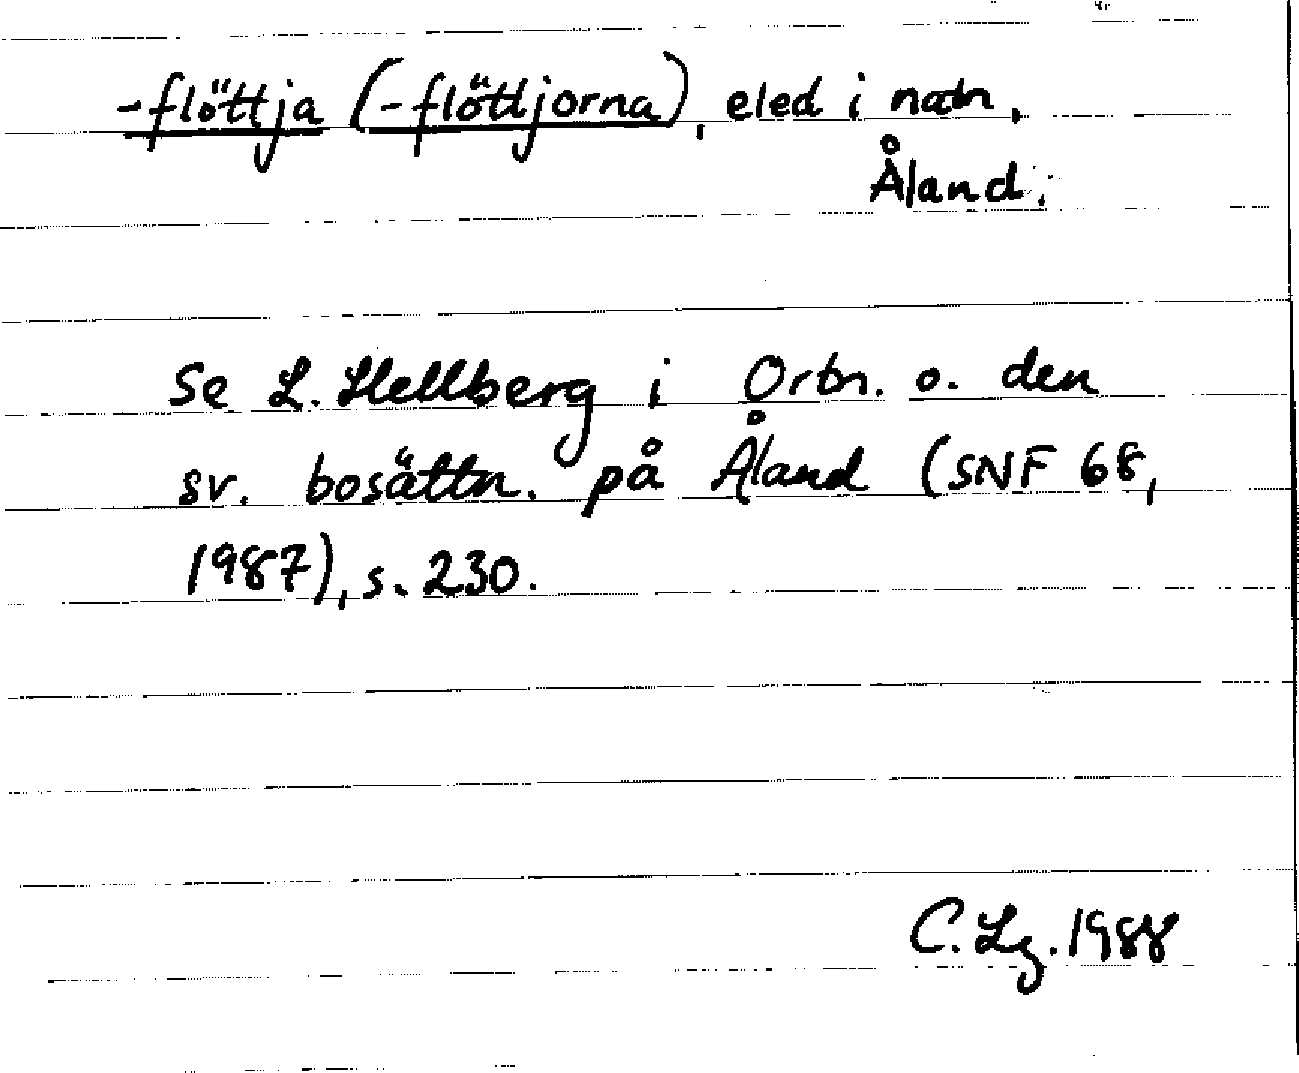 -flöttja (-flöttjorna), eled i natn,
Åland.
Se L. Hellberg i Ortn. o. den
sv. bosättn. på Åland (SNF 68,
1987), s. 230.
C. Lg. 1988